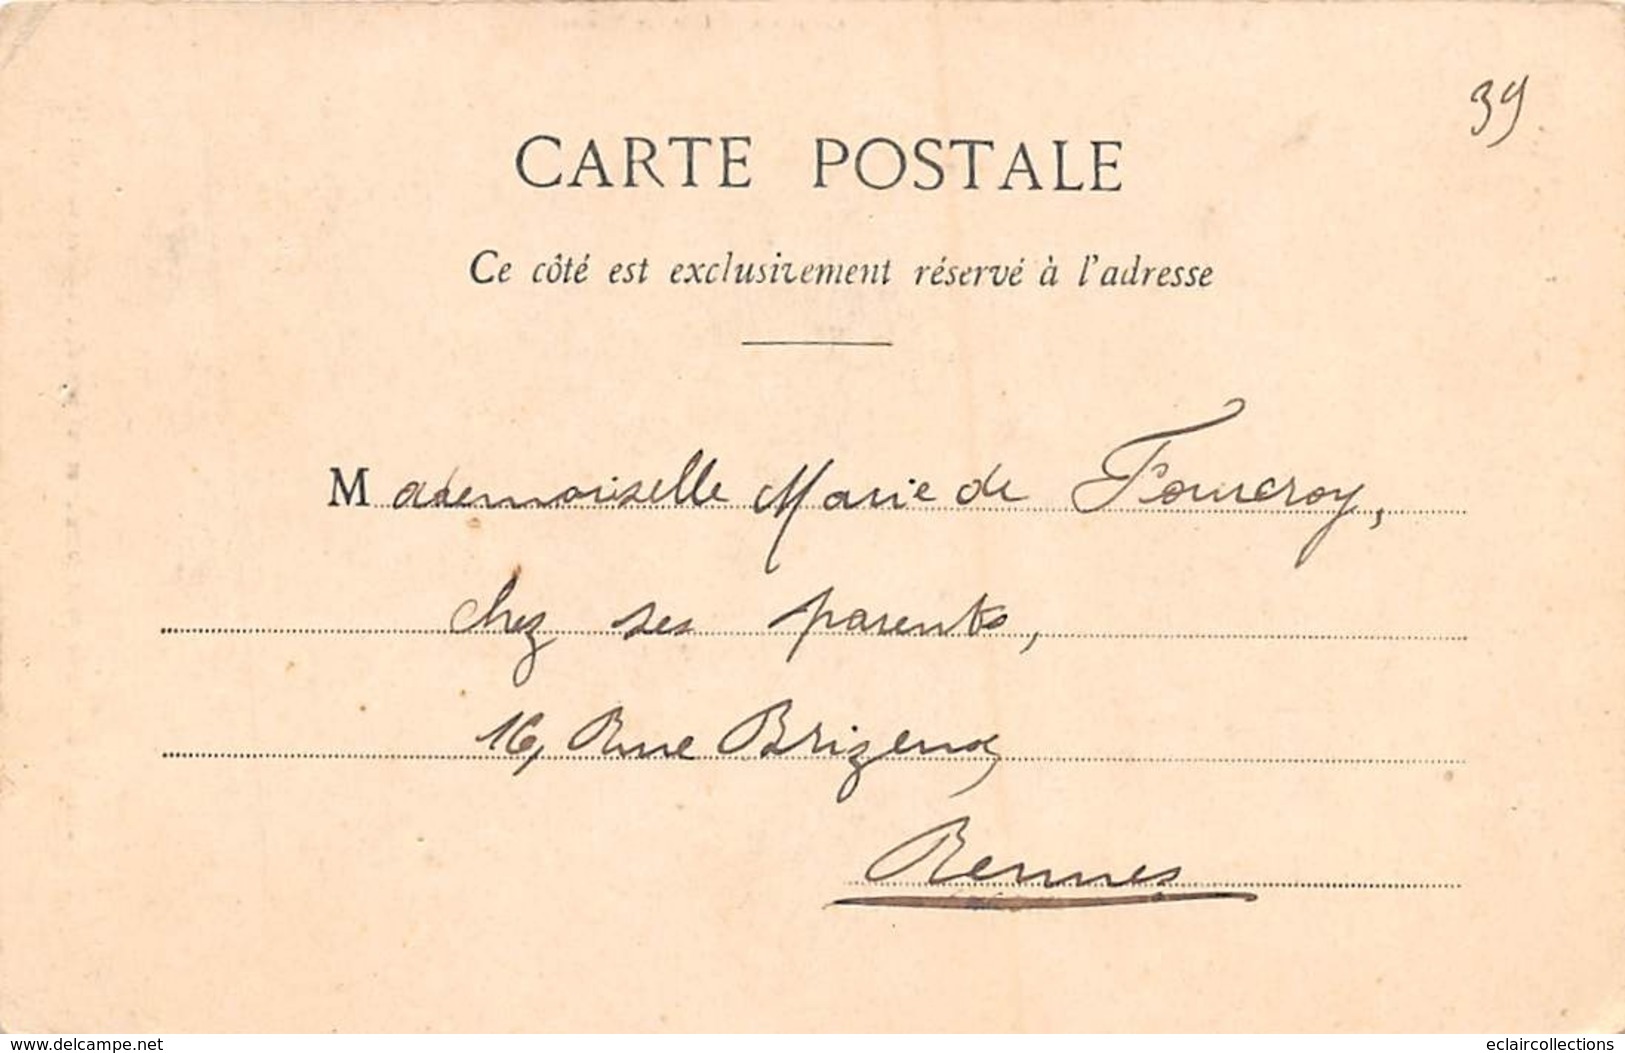 39
CARTE POSTALE
Ce côté est exclusivement réservé à l'adresse
Mademoiselle Marie de Fourcroy,
chez ses parents,
16, Rue Brizeux,
Rennes
www.delcampe.net
eclaircollections